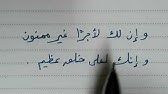 وإن لك لأجرًا غير ممنون
وإنك لعلى خلق عظيم .